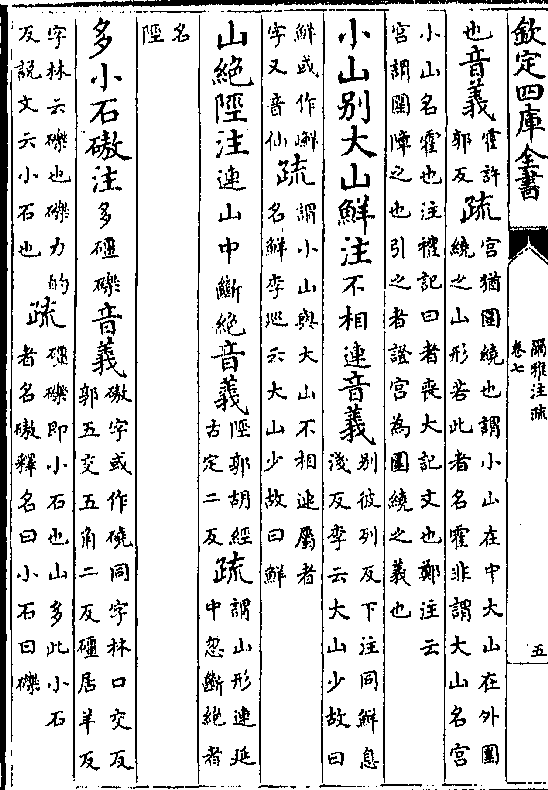 欽定四庫全書
爾雅注疏
卷七
五
也音義霍許郭反疏宮猶圍繞也謂小山在中大山在外圍繞之山形若此者名霍非謂大山名宮
小山名霍也注禮記曰者喪大記文也鄭注云
宮謂圍障之也引之者證宮為圍繞之義也
小山別大山鮮注不相連音義別彼列反下注同鮮息淺反李云大山少故曰
鮮或作㟍字又音仙疏謂小山與大山不相連屬者名鮮李廵云大山少故曰鮮
山絶陘注連山中斷絶音義陘郭胡經古定二反疏謂山形連延中忽斷絶者
名陘
多小石磝注多礓礫音義磝字或作磽同字林口交反郭五交五角二反礓居羊反
字林云礫也礫力的反說文云小石也疏礓礫即小石也山多此小石者名磝釋名曰小石曰礫